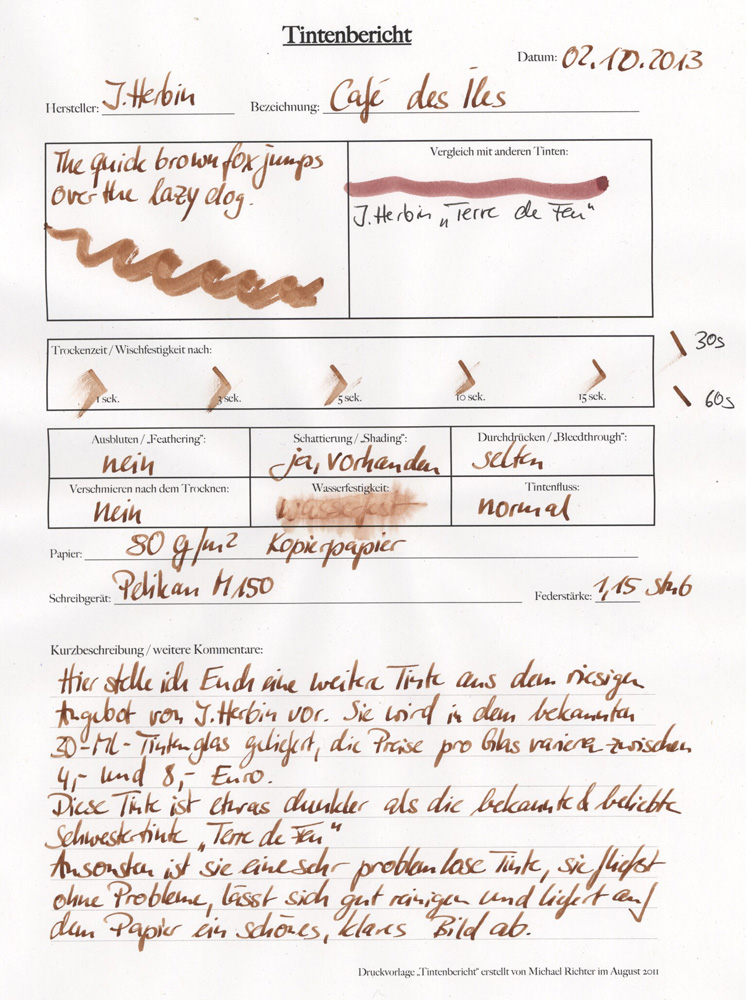 Tintenbericht
Datum: 02.10.2013
Hersteller: J.Herbin Bezeichnung: Café des Îles
The quick brown fox jumps
over the lazy dog.
Vergleich mit anderen Tinten:
J.Herbin „Terre de Feu"
Trockenzeit / Wischfestigkeit nach:
1 sek. 3 sek. 5 sek. 10 sek. 15 sek.
30s
60s
Ausbluten / „Feathering": Schattierung / „Shading": Durchdrücken / „Bleedthrough":
nein ja, vorhanden selten
Verschmieren nach dem Trocknen: Wasserfestigkeit: Tintenfluss:
nein wasserfest normal
Papier: 80 g/m² Kopierpapier
Schreibgerät: Pelikan M150 Federstärke: 1,15 Stub
Kurzbeschreibung / weitere Kommentare:
Hier stelle ich Euch eine weitere Tinte aus dem riesigen
Angebot von J.Herbin vor. Sie wird in dem bekannten
30-ML-Tintenglas geliefert, die Preise pro Glas variieren zwischen
4,- und 8,- Euro.
Diese Tinte ist etwas dunkler als die bekannte & beliebte
Schwestertinte „Terre de Feu"
Ansonsten ist sie eine sehr problemlose Tinte, sie fließt
ohne Probleme, lässt sich gut reinigen und liefert auf
dem Papier ein schönes, klares Bild ab.
Druckvorlage „Tintenbericht" erstellt von Michael Richter im August 2011